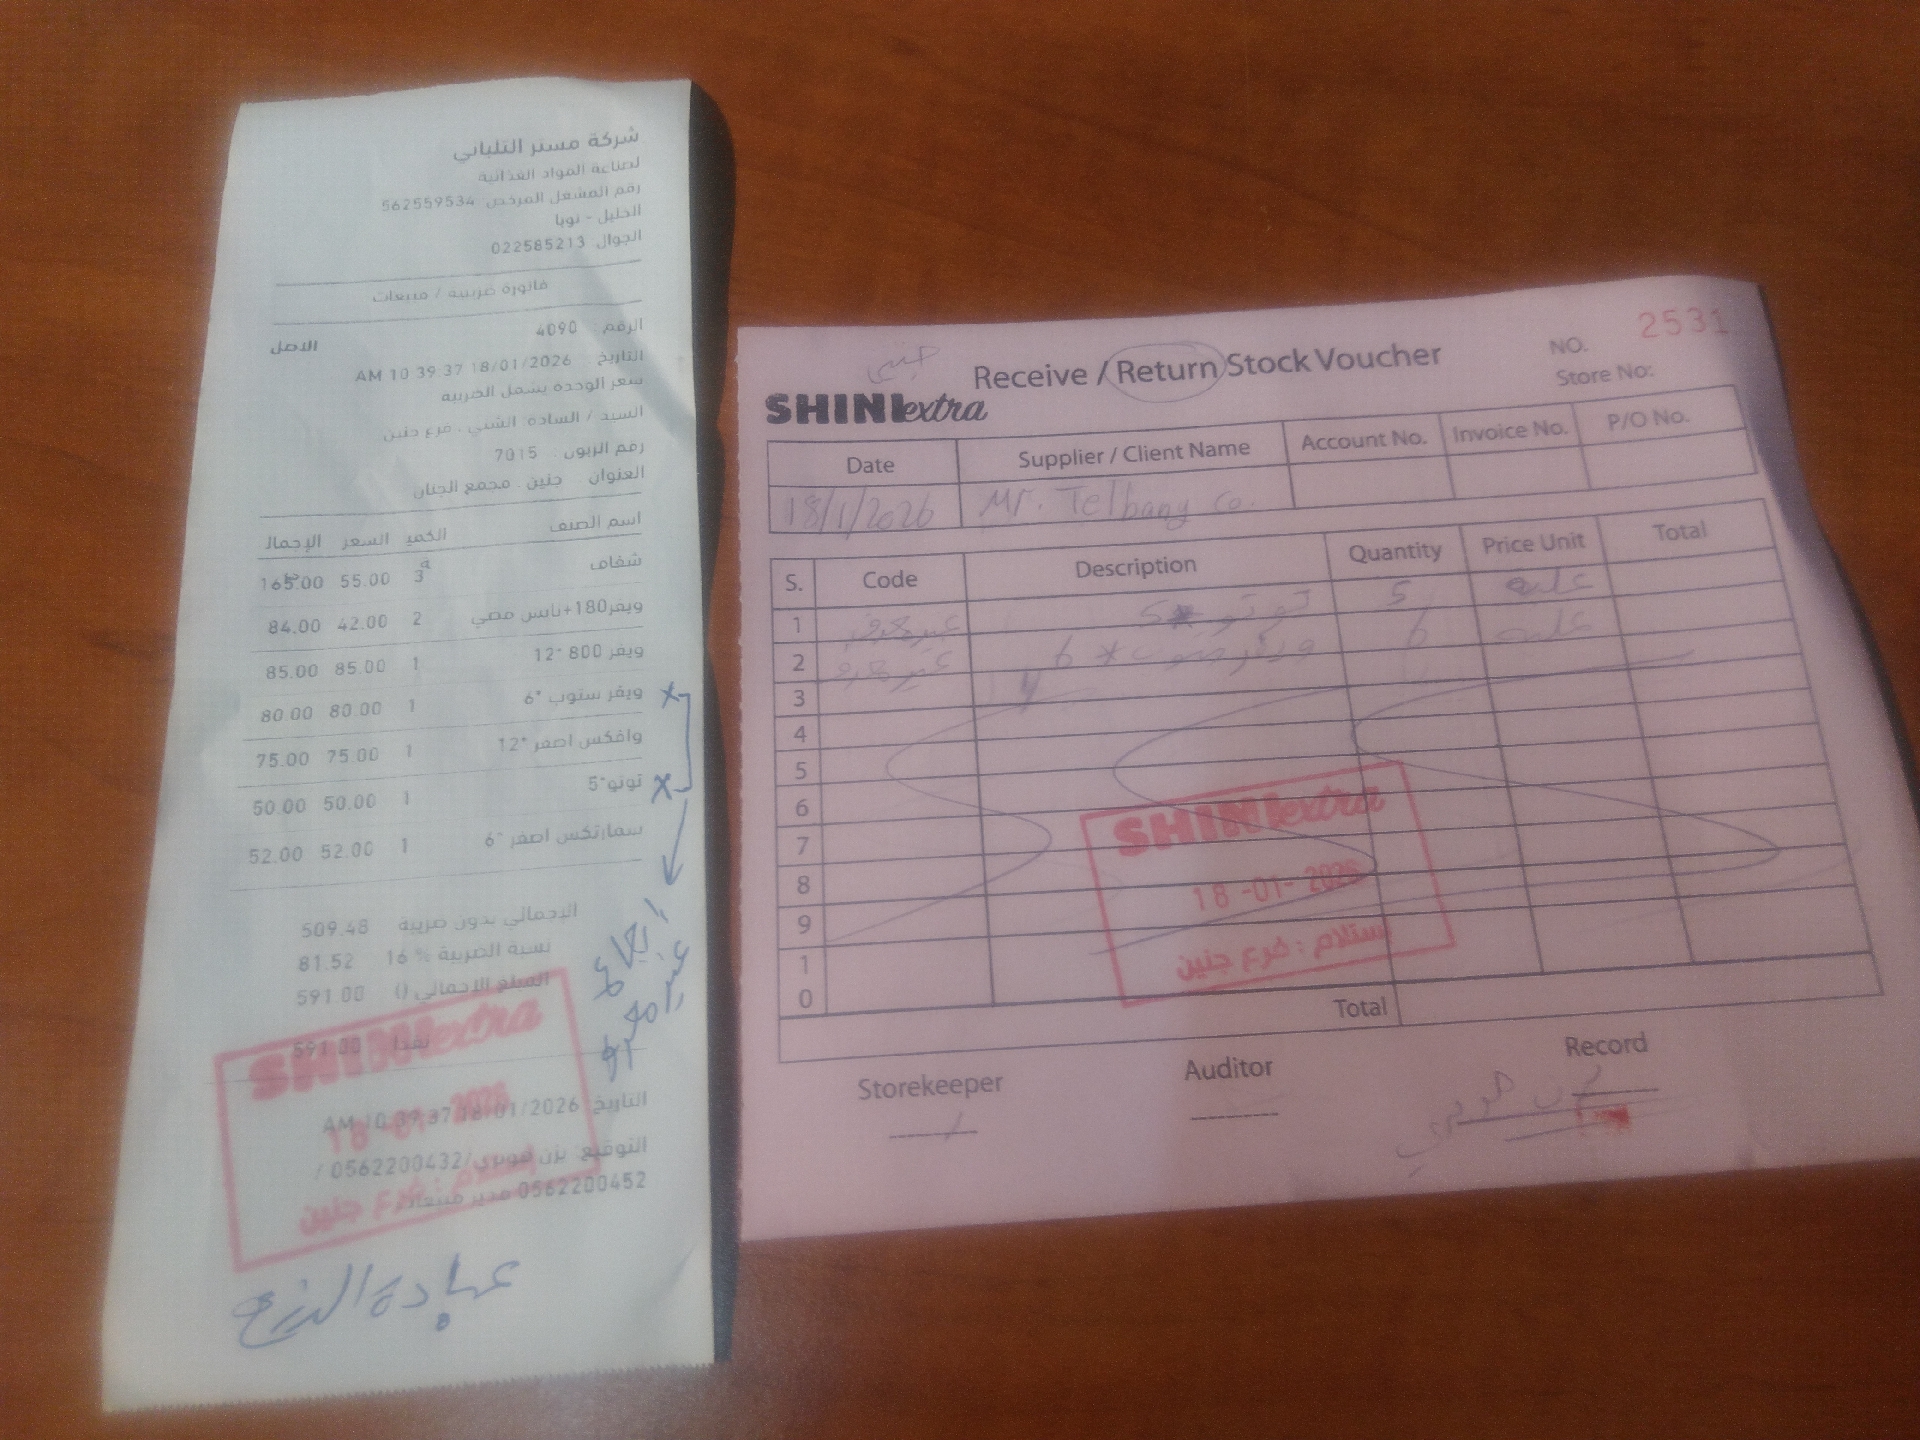 شركة مستر التلباني
لصناعة المواد الغذائية
رقم المشغل المرخص 562559534
الخليل - نوبا
الجوال 022585213
فاتورة ضريبية / مبيعات
الرقم: 4090 الاصل
التاريخ: 18/01/2026 10:39:37 AM
سعر الوحدة يشمل الضريبة
السيد / السادة: الشني . فرع جنين
رقم الزبون: 7015
العنوان جنين . مجمع الجنان
اسم الصنف الكمية السعر الإجمال
شفاف 3 55.00 165.00
ويفر180+نايس فضي 2 42.00 84.00
ويفر 800 *12 1 85.00 85.00
ويفر ستوب *6 1 80.00 80.00
وافكس اصفر *12 1 75.00 75.00
توتو*5 1 50.00 50.00
سمارتكس اصفر *6 1 52.00 52.00
الإجمالي بدون ضريبة 509.48
نسبة الضريبة % 16 81.52
المبلغ الاجمالي () 591.00
نقدا 591.00
التاريخ: 18/01/2026 10:39:37 AM
التوقيع: يزن /0562200432 /
0562200452 مدير مبيعات
SHINI extra
18 -01- 2026
استلام : فرع جنين
ارجاع
غير معرف
عبادة
NO. 2531
Store No:
Receive / Return Stock Voucher
SHINI extra
Date Supplier / Client Name Account No. Invoice No. P/O No.
18/1/2026 Mr. Telbany co.
S. Code Description Quantity Price Unit Total
1 غير معرف توتو *5 5 علبة
2 غير معرف ويفر ستوب * 6 6 علبة
3
4
5
6
7
8
9
10
Total
SHINI extra
18 -01- 2026
استلام : فرع جنين
Storekeeper Auditor Record